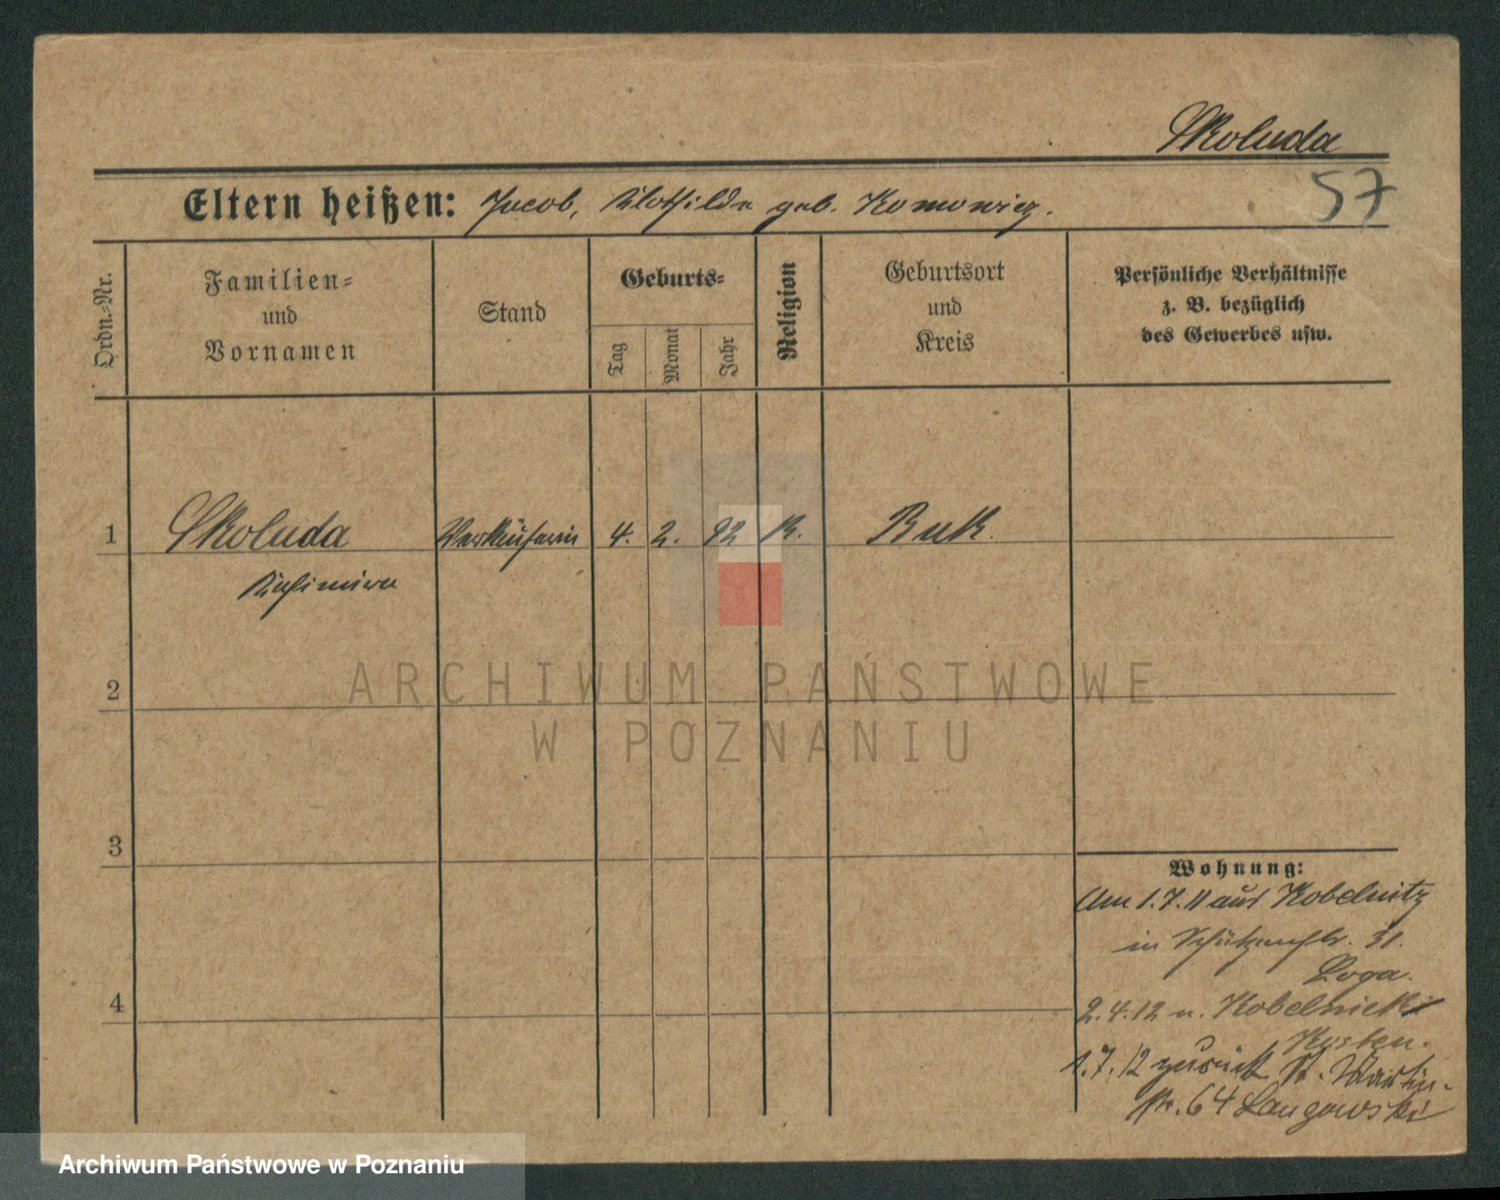 Skoluda
57
Eltern heißen: Jacob, Klothilde geb. Komowicz.
Ordn.-Nr.
Familien-
und
Vornamen
Stand
Geburts-
Tag
Monat
Jahr
Religion
Geburtsort
und
Kreis
Persönliche Verhältnisse
z. B. bezüglich
des Gewerbes usw.
1 Skoluda Verkäuferin 4. 2. 92 K. Buk.
Kasimira
2
3
4
Wohnung:
Am 1.7.11 aus Kobelnitz
in Schützenstr. 31.
Loga.
2.4.12 n. Kobelnicki
Kosten.
1.7.12 zurück St. Martin-
str. 64 Langowski
ARCHIWUM PAŃSTWOWE
W POZNANIU
Archiwum Państwowe w Poznaniu